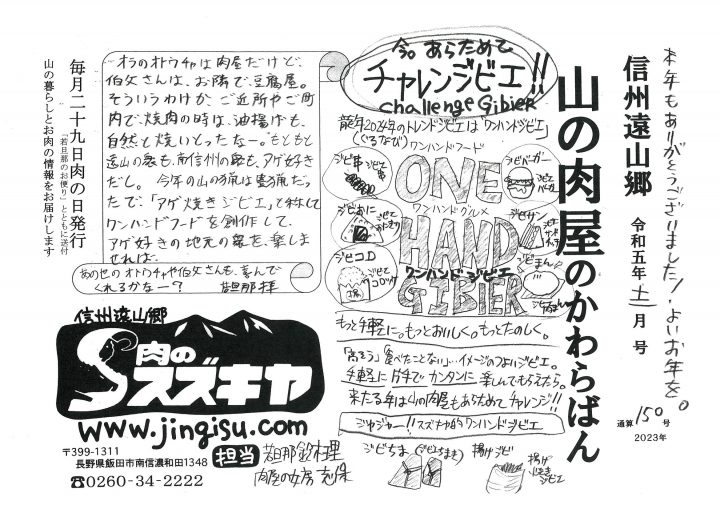 本年もありがとうございました！よいお年を。
信州遠山郷
令和五年十二月号
山の肉屋のかわらばん
通算150号
2023年
今あらためて
チャレンジビエ!!
challenge Gibier
龍年2024年のトレンドジビエは「ワンハンドジビエ」
(ぐるなび)
ワンハンドフード
ONE
ワンハンドグルメ
HAND
ワンハンドジビエ
GIBIER
ジビ串
ジビおに
ジビコロ
ジビエコロッケ
ジビバーガー
ジビエバーガー
ジビサン
ジビまん
もっと手軽に。もっとおいしく。もっとたのしく。
「食べたことない」…イメージのつよいジビエ。
手軽に片手でカンタンに楽しんでもらえたら。
来たる年は山の肉屋もあらためてチャレンジ!!
ジャジャー!!スズキヤ的ワンハンドジビエ
ジビちま(ジビちまき)
揚げジビ
揚げ焼きジビエ
オラのオトウチャは肉屋だけど、
伯父さんは、お隣で、豆腐屋。
そういうわけか、ご近所やご町
内で、焼肉の時は、油揚げも、
自然と焼いとったなー。もともと
遠山の衆も、南信州の衆も、アゲ好き
だし。今年の山の猟は豊猟だっ
たで、「アゲ焼きジビエ」と称して
ワンハンドフードを創作して、
アゲ好きの地元の衆を、楽しま
せれば。
あの世のオトウチャや伯父さんも、喜んで
くれるかなー？ 若旦那拝
毎月二十九日肉の日発行
「若旦那のお便り」とともに送付
山の暮らしとお肉の情報をお届けします
信州遠山郷
肉のスズキヤ
www.jingisu.com
〒399-1311
長野県飯田市南信濃和田1348
☎0260-34-2222
担当
若旦那 鈴木理
肉屋の女房